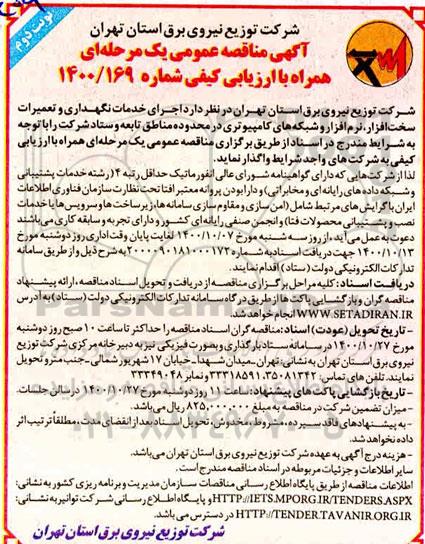 نوبت دوم
شرکت توزیع نیروی برق استان تهران
آگهی مناقصه عمومی یک مرحله‌ای
همراه با ارزیابی کیفی شماره ۱۴۰۰/۱۶۹
شرکت توزیع نیروی برق استان تهران در نظر دارد اجرای خدمات نگهداری و تعمیرات
سخت‌افزار، نرم‌افزار و شبکه‌های کامپیوتری در محدوده مناطق تابعه و ستاد شرکت را با توجه
به شرایط مندرج در اسناد از طریق برگزاری مناقصه عمومی یک مرحله‌ای همراه با ارزیابی
کیفی به شرکت های واجد شرایط واگذار نماید.
لذا از شرکت‌هایی که دارای گواهینامه شورای عالی انفورماتیک حداقل رتبه ۴ (رشته خدمات پشتیبانی
و شبکه داده های رایانه ای و مخابراتی) و دارا بودن پروانه معتبر افتا تحت نظارت سازمان فناوری اطلاعات
ایران با گرایش های مرتبط شامل (امن سازی و مقاوم سازی سامانه ها، زیرساخت ها و سرویس ها یا خدمات
نصب و پشتیبانی محصولات فتا) و انجمن صنفی رایانه ای کشور و دارای تجربه و سابقه کاری می‌باشند
دعوت به عمل می‌آید، از روز سه شنبه مورخ ۱۴۰۰/۱۰/۰۷ لغایت پایان وقت اداری روز دوشنبه مورخ
۱۴۰۰/۱۰/۱۳ جهت دریافت اسناد به شماره ۲۰۰۰۰۹۰۱۸۱۰۰۰۱۷۲ به شرح ذیل و از طریق سامانه
تدارکات الکترونیکی دولت (ستاد) اقدام نمایند.
دریافت اسناد: کلیه مراحل برگزاری مناقصه از دریافت و تحویل اسناد مناقصه، ارائه پیشنهاد
مناقصه گران و بازگشایی پاکت ها از طریق درگاه سامانه تدارکات الکترونیکی دولت (ستاد) به آدرس
WWW.SETADIRAN.IR انجام خواهد شد.
- تاریخ تحویل (عودت) اسناد: مناقصه گران اسناد مناقصه را حداکثر تا ساعت ۱۰ صبح روز دوشنبه
مورخ ۱۴۰۰/۱۰/۲۷ در سامانه ستاد بارگذاری و بصورت فیزیکی نیز به دبیرخانه مرکزی شرکت توزیع
نیروی برق استان تهران به نشانی: تهران-میدان شهدا-خیابان ۱۷ شهریور شمالی-جنب مترو تحویل
نمایند. تلفن های تماس: ۳۵۰۸۱۳۴۲-۳۳۳۱۸۵۹۱ و نمابر ۳۳۳۴۹۰۴۸
- تاریخ بازگشایی پاکت های پیشنهاد: ساعت ۱۱ روز دوشنبه مورخ ۱۴۰۰/۱۰/۲۷ در سالن جلسات.
- میزان تضمین شرکت در مناقصه به مبلغ ۸۲۵,۰۰۰,۰۰۰ ریال می‌باشد.
- به پیشنهادهای فاقد سپرده، مشروط، مخدوش، تحویل اسناد بعد از انقضای مدت، مطلقاً ترتیب اثر
داده نخواهد شد.
- هزینه درج آگهی به عهده شرکت توزیع نیروی برق استان تهران می‌باشد.
سایر اطلاعات و جزئیات مربوطه در اسناد مناقصه مندرج است.
اطلاعات مناقصه از طریق پایگاه اطلاع رسانی مناقصات سازمان مدیریت و برنامه ریزی کشور به نشانی:
HTTP://IETS.MPORG.IR/TENDERS.ASPX و پایگاه اطلاع رسانی شرکت توانیر به نشانی:
HTTP://TENDER.TAVANIR.ORG.IR در دسترس می باشد.
شرکت توزیع نیروی برق استان تهران